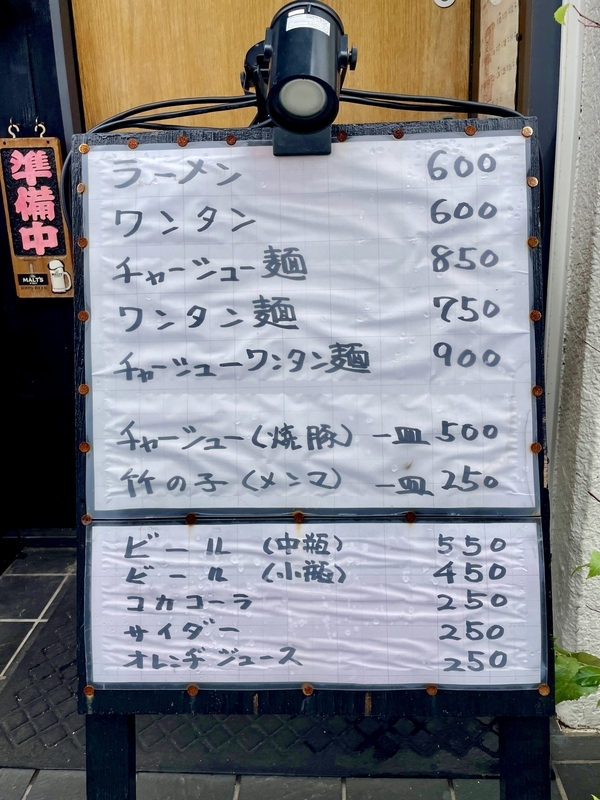 ラーメン 600
ワンタン 600
チャージュー麺 850
ワンタン麺 750
チャージューワンタン麺 900
チャージュー(焼豚) 一皿 500
竹の子(メンマ) 一皿 250
ビール (中瓶) 550
ビール (小瓶) 450
コカコーラ 250
サイダー 250
オレンヂジュース 250
準備中
MALT'S